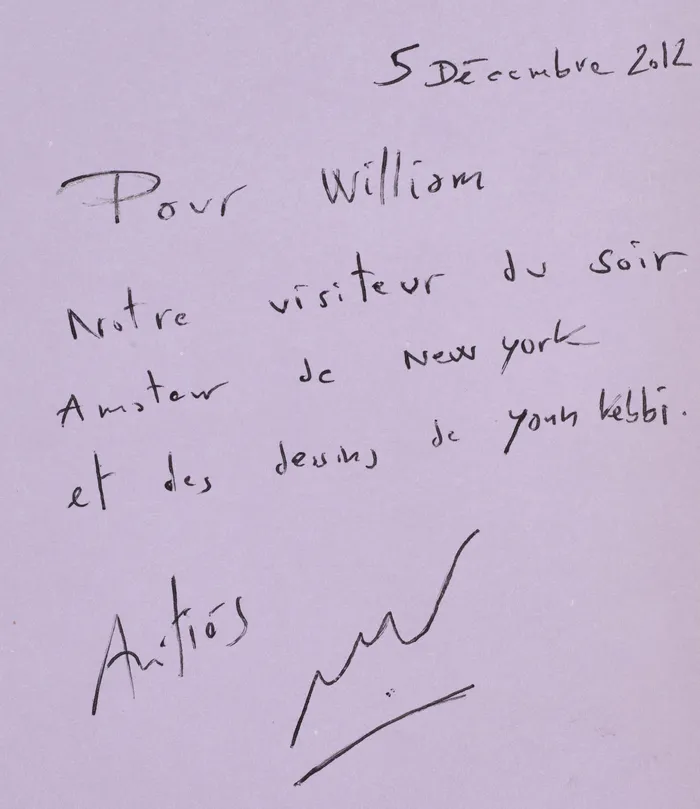 5 Décembre 2012
Pour William
Notre visiteur du soir
Amateur de New york
et des dessins de yann kebbi.